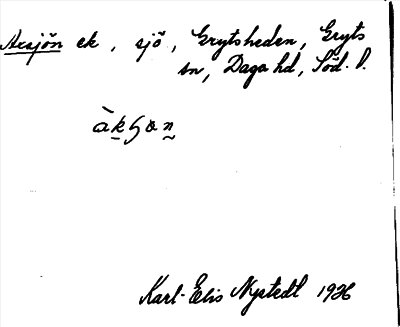 Acsjön ek, sjö, Grytsheden, Gryts
sn, Daga hd, Söd. l.
àkʂɷn
Karl-Elis Nystedt 1936